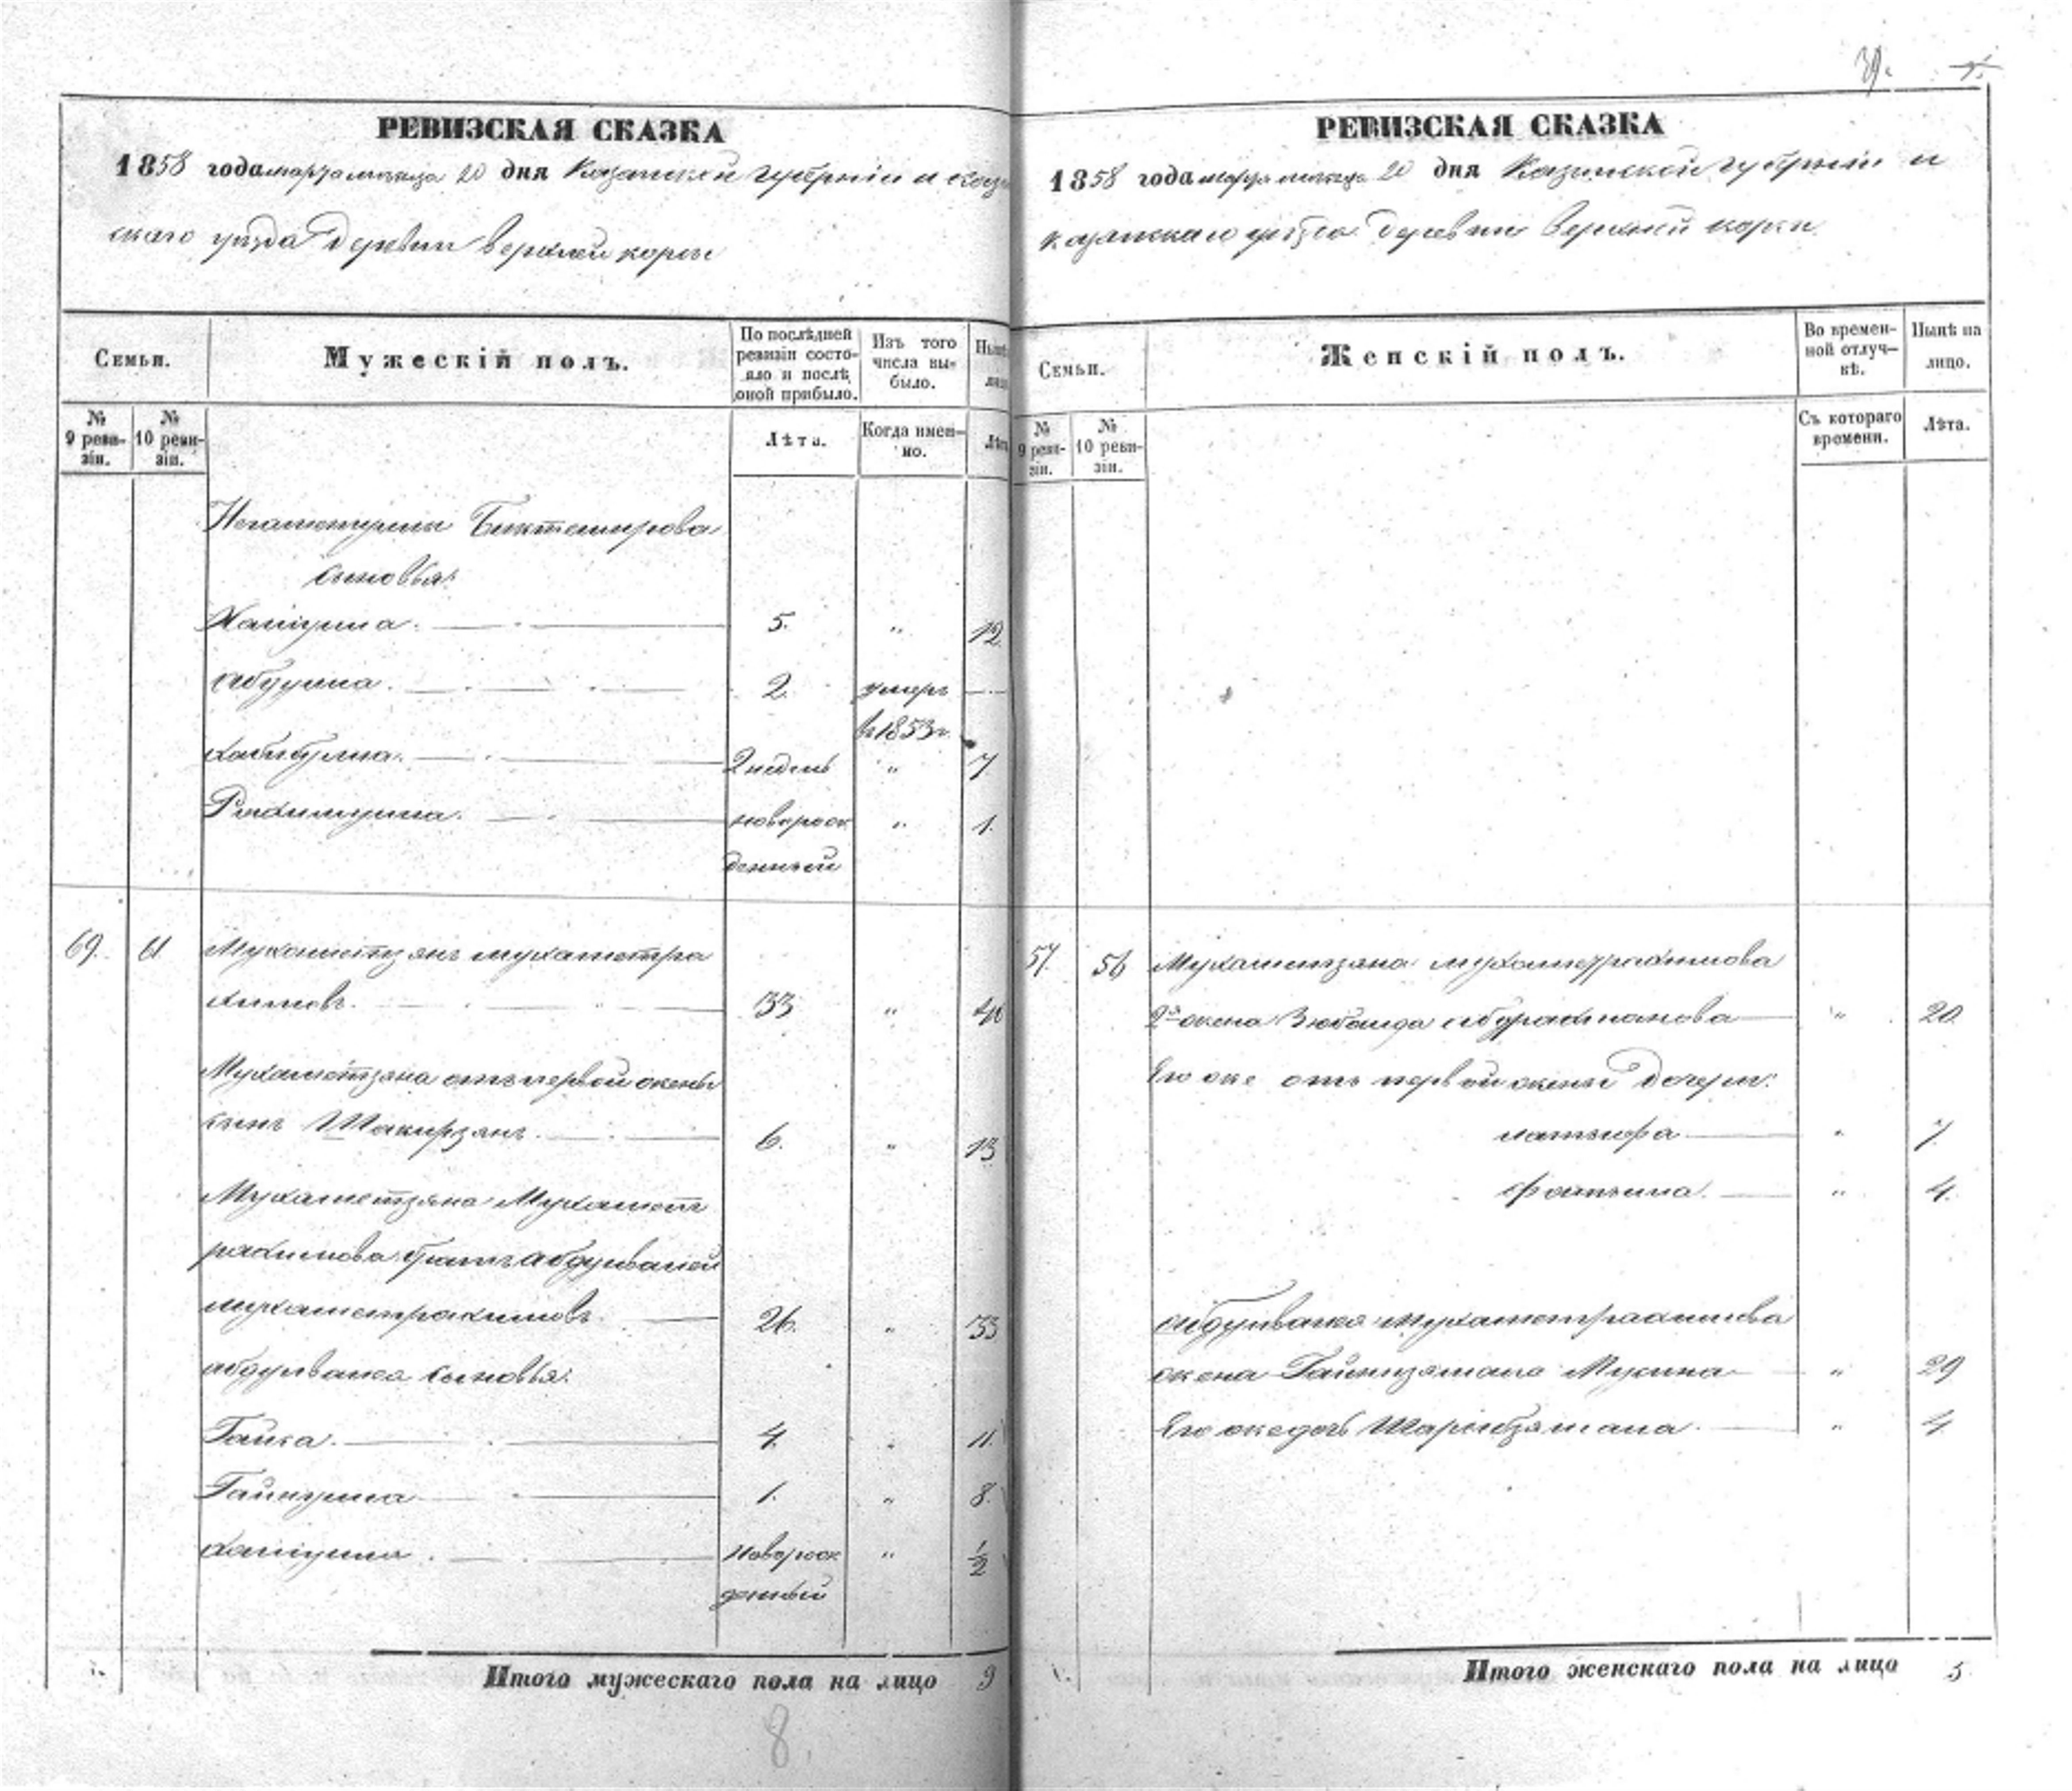 39.
РЕВИЗСКАЯ СКАЗКА
1858 года марта месяца 20 дня Казанской губерніи и казан
скаго уезда деревни верхней корсы
Семьи.
Мужескій полъ.
По послѣдней ревизіи состояло и послѣ оной прибыло.
Изъ того числа выбыло.
Нынѣ
№ 9 ревизіи.
№ 10 ревизіи.
Лѣта.
Когда именно.
Лѣта
Биктемирова
сыновья:
5. " 12
Абдулла. 2. умеръ
въ 1853 г.
Хабибулла. 2 недель " 7
новорож " 1.
денный
69. 61 Мухаметзянъ мухаметра
химовъ. 33 " 40
Мухаметзяна отъ первой жены
сынъ Шакирзянъ. 6. " 13
Мухаметзяна Мухамет
рахимова братъ абдулвалей
мухаметрахимовъ. 26. " 33
абдулвалея сыновья:
Гайса. 4. " 11.
Гайнулла 1. " 8.
новорож " 1/2
денный
Итого мужескаго пола на лицо 9
8.
РЕВИЗСКАЯ СКАЗКА
1858 года марта месяца 20 дня Казанской губерніи и
казанскаго уезда деревни верхней корсы
Семьи.
Женскій полъ.
Во временной отлучкѣ.
Нынѣ на лицо.
№ 9 ревизіи.
№ 10 ревизіи.
Съ котораго времени.
Лѣта.
57. 56 Мухаметзяна мухаметрахимова
2я жена Зюбаида абдрахманова " 20.
Его же отъ первой жены дочери:
латыфа " 7.
фатыма. " 4.
абдулвалея мухаметрахимова
жена Гайнизямала Мусина " 29
Его же дочь Шарибзямала. " 4
Итого женскаго пола на лицо 5